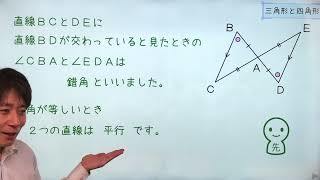 三角形と四角形
直線ＢＣとＤＥに
直線ＢＤが交わっていると見たときの
∠ＣＢＡと∠ＥＤＡは
錯角 といいました。
角が等しいとき
２つの直線は 平行 です。
B
E
A
C
D
先